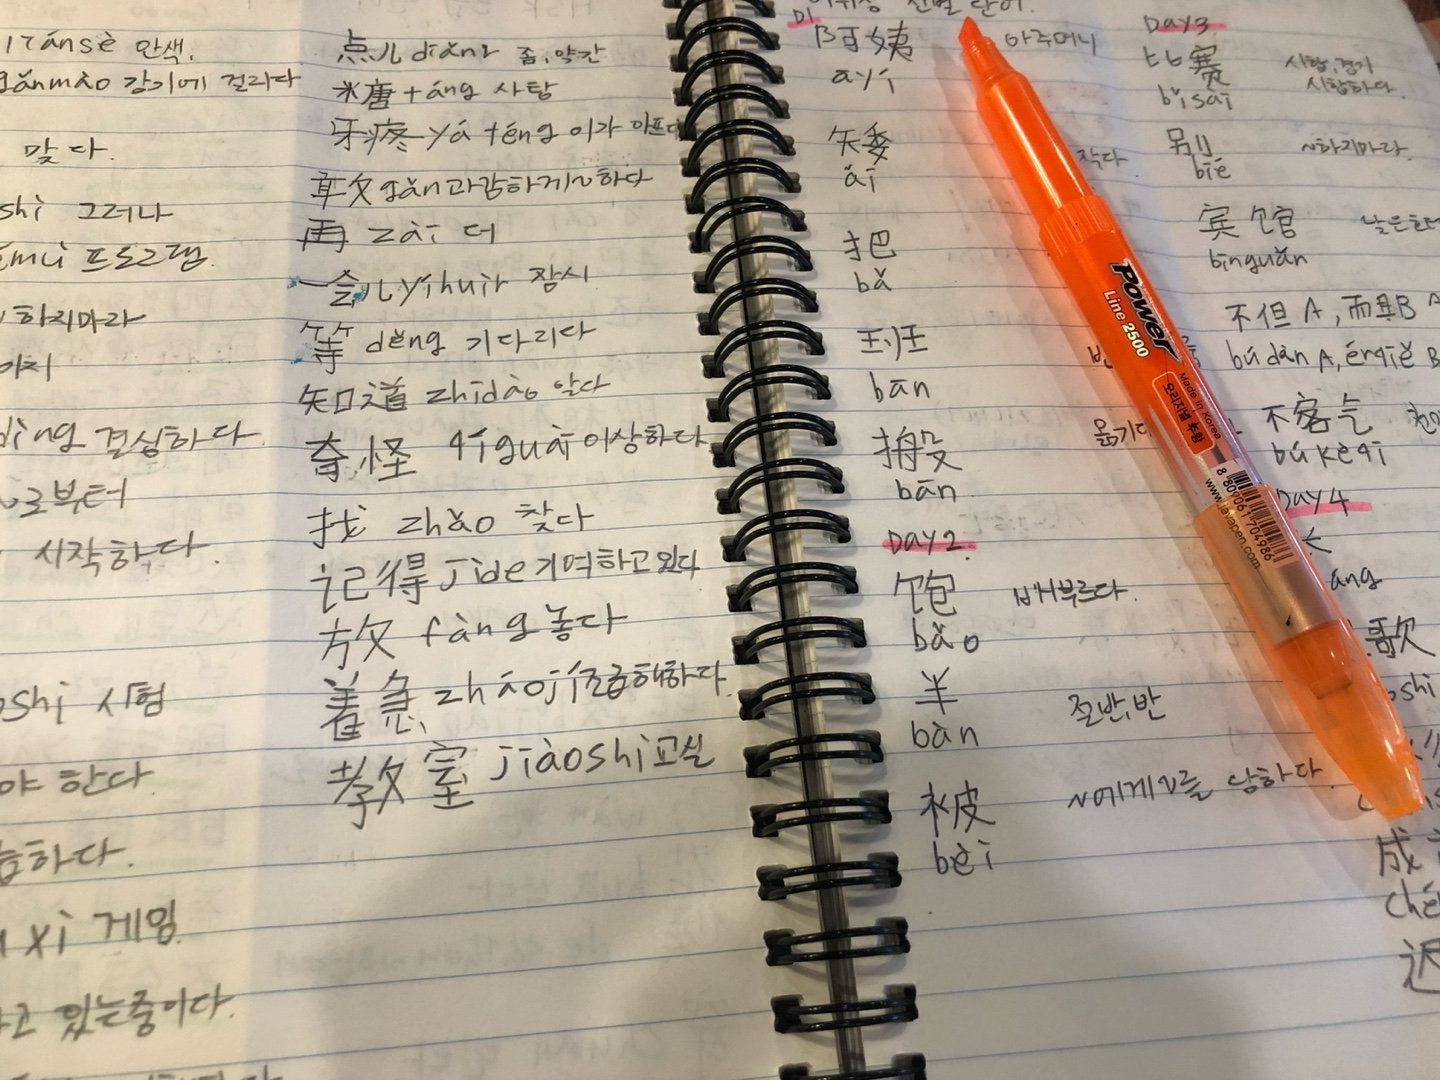 안색.
gǎnmào 감기에 걸리다
맞다.
shì 그러나
프로그램.
하지마라
결심하다.
로부터
시작하다.
시험
야 한다.
하다.
xì 게임.
고 있는중이다.
点儿 diǎnr 좀, 약간
糖 táng 사탕
牙疼 yá téng 이가 아프다
敢 gǎn 과감하게~하다
再 zài 더
一会儿 yíhuìr 잠시
等 děng 기다리다
知道 zhīdào 알다
奇怪 qíguài 이상하다
找 zhǎo 찾다
记得 jìde 기억하고 있다
放 fàng 놓다
着急 zháojí 조급해하다.
教室 jiàoshì 교실
D1
단어.
阿姨 아주머니
āyí
矮 작다
ǎi
把
bǎ
班
bān
搬 옮기다
bān
Day2.
饱 배부르다.
bǎo
半 절반, 반
bàn
被 ~에게~를 당하다.
bèi
Day3.
比赛 시합, 경기
시합하다.
bǐsài
别 ~하지마라.
bié
宾馆
bīnguǎn
不但 A, 而且 B
búdàn A, érqiě B
不客气
búkèqi
Day4
歌
成
迟
Power
Line 2500
Made in Korea
오리지널 추황
8 809061 704986
www.javapen.com